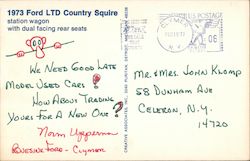 1973 Ford LTD Country Squire
station wagon
with dual facing rear seats
We Need Good Late
Model Used Cars!
How About Trading
Yours For A New One?
Norm
Ford - Clymer
CLYMER
N.Y.
U.S. POSTAGE
Mr. & Mrs. John Klomp
58 Dunham Ave
Celeron, N.Y.
14720